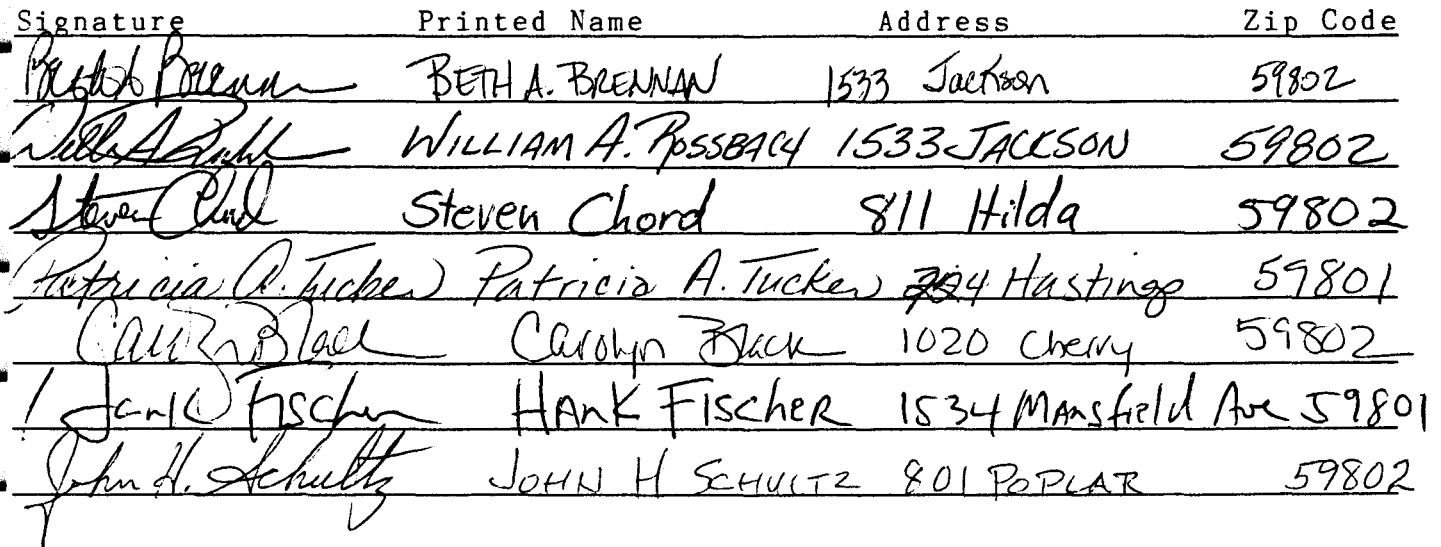 Signature Printed Name Address Zip Code
Beth A Brennan BETH A. BRENNAN 1533 Jackson 59802
WILLIAM A. ROSSBACH 1533 JACKSON 59802
Steven Chord Steven Chord 811 Hilda 59802
Patricia A. Tucker Patricia A. Tucker Hastings 59801
Carolyn Black Carolyn Black 1020 Cherry 59802
Hank Fischer HANK FISCHER 1534 Mansfield Ave 59801
John H. Schultz JOHN H SCHULTZ 801 POPLAR 59802